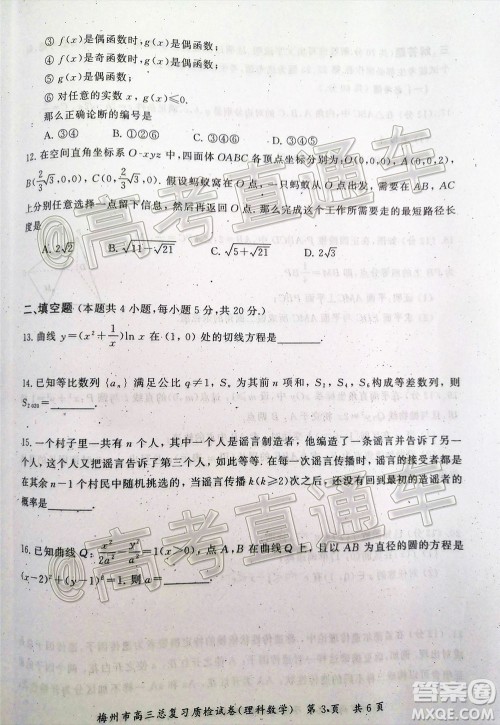 ③ f(x)是偶函数时,g(x)是偶函数;
④ f(x)是奇函数时,g(x)是偶函数;
⑤ f(x)是偶函数时,g(x)是奇函数;
⑥ 对任意的实数 x,g(x)≤0.
那么正确论断的编号是
A.③④ B.③⑤ C.④⑥ D.③⑥
12. 在空间直角坐标系 O-xyz 中,四面体 OABC 各顶点坐标分别为 O(0,0,0),
B(2/3√3,0,0), C(0,2/3√3,0). 假设蚂蚁窝在 O 点,一只蚂蚁从 O 点出发,需要在 AB,AC
上分别任意选择一点留下信息,然后再返回 O 点. 那么完成这个工作所需要走的最短路径长
度是
A. 2√2 B. √(11-√21) C. √(5+√21) D. 2√3
二、填空题 (本题共 4 小题,每小题 5 分,共 20 分.)
13. 曲线 y=(x²+1/x)ln x 在 (1,0) 处的切线方程是
14. 已知等比数列 {aₙ} 满足公比 q≠1, Sₙ 为其前 n 项和, S₂, S₄, S₆ 构成等差数列,则
S₂₀₂₀=
15. 一个村子里一共有 n 个人,其中一个人是谣言制造者,他编造了一条谣言并告诉了另一
个人,这个人又把谣言告诉了第三个人,如此等等. 在每一次谣言传播时,谣言的接受者都是
在其余 n-1 个村民中随机挑选的,当谣言传播 k(k≥2) 次之后,还没有回到最初的造谣者的
概率是
16. 已知曲线 Q: x²/2a² - y²/a² =1(x>0),点 A, B 在曲线 Q 上,且以 AB 为直径的圆的方程是
(x-2)²+(y-1)²=1. 则 a=
梅州市高三总复习质检试卷(理科数学) 第 3 页 共 6 页
@高考直通车
@高考直通车
答案圈